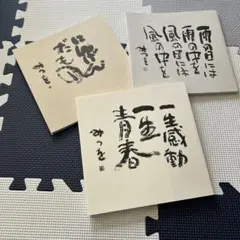 にんげん
だもの
みつを
雨の日には
雨の中を
風の日には
風の中を
みつを
一生感動
一生青春
みつを